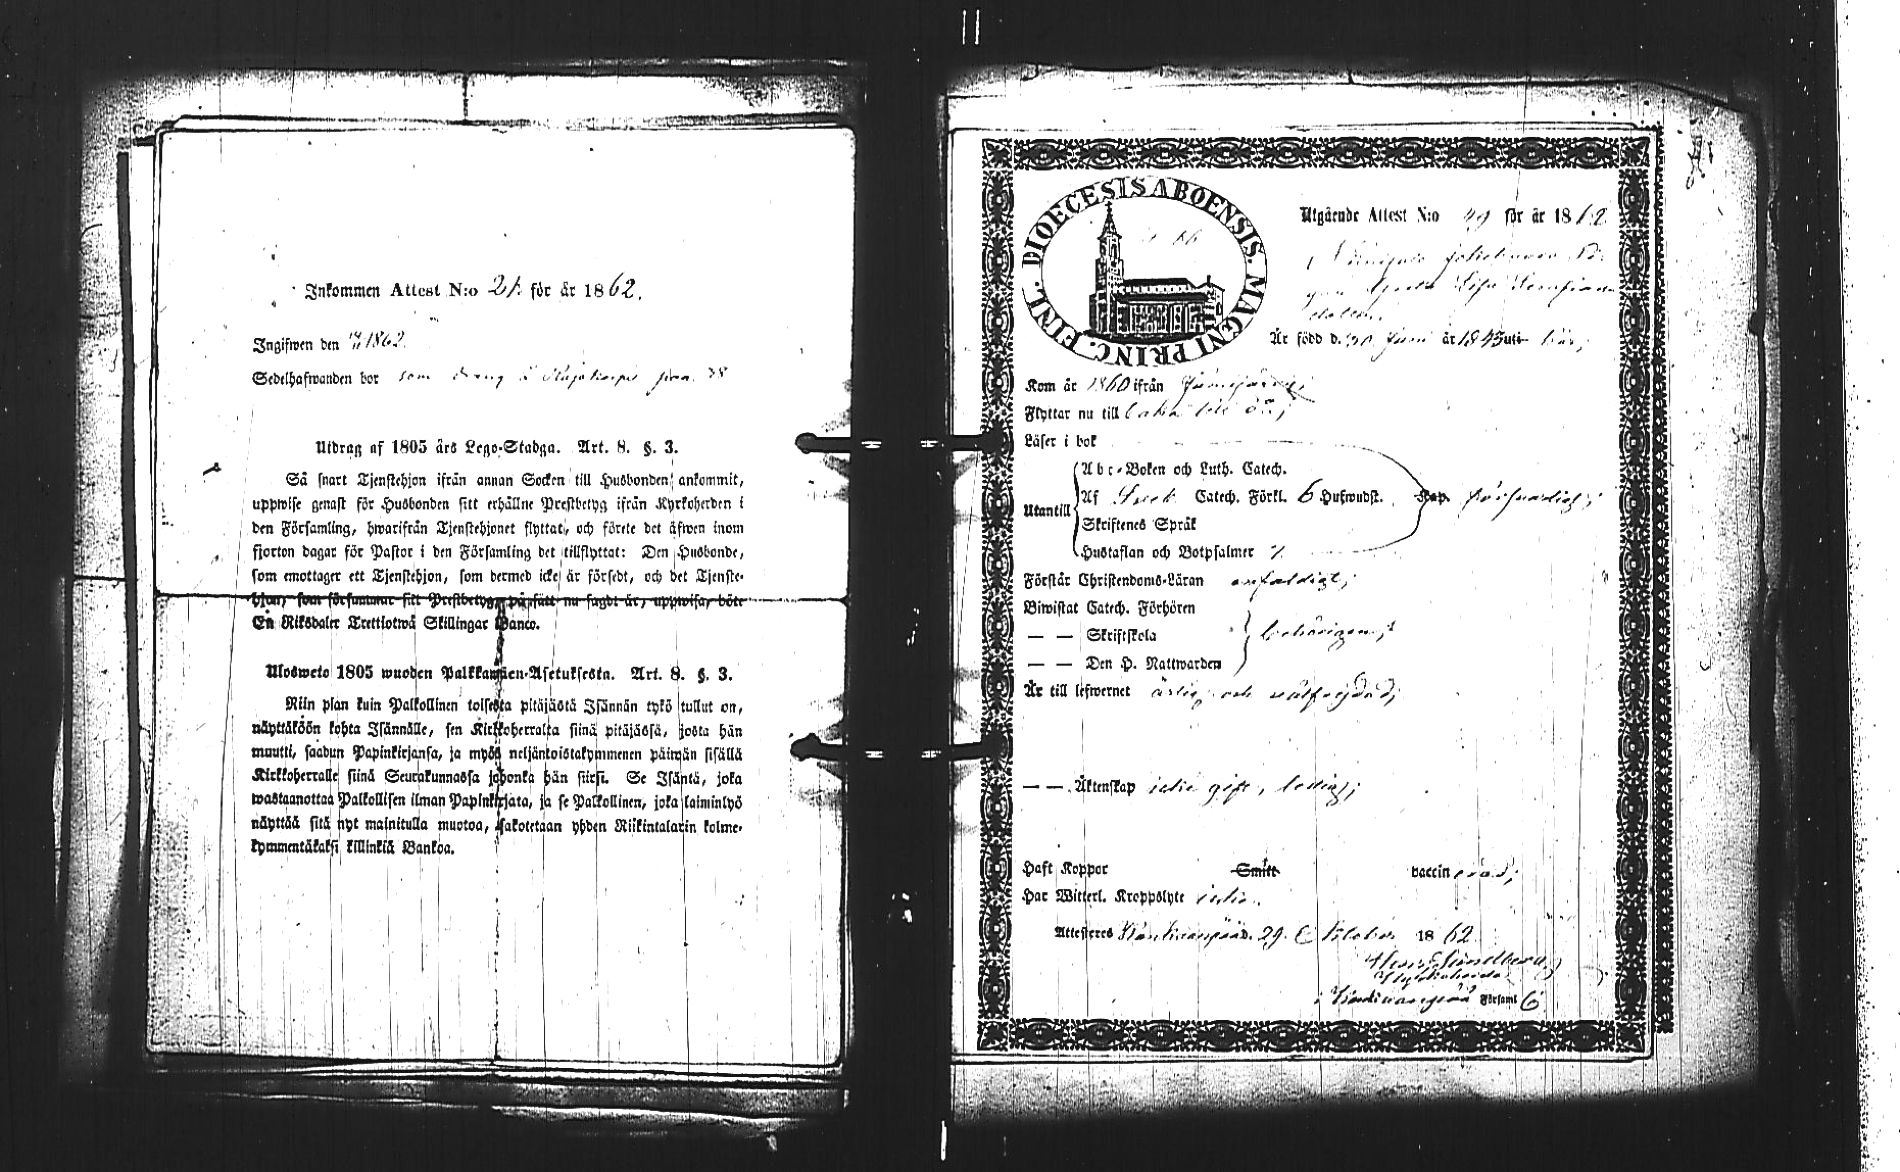 Inkommen Attest N:o 21. för år 1862.
Ingifwen den 1862.
Sedelhafwanden bor som dräng
Utdrag af 1805 års Lego-Stadga. Art. 8. §. 3.
Så snart Tjenstehjon ifrån annan Socken till Husbonden ankommit,
uppwise genast för Husbonden sitt erhållne Prestbetyg ifrån Kyrkoherden i
den Församling, hwarifrån Tjenstehjonet flyttat, och förete det äfwen inom
fjorton dagar för Pastor i den Församling det tillflyttat: Den Husbonde,
som emottager ett Tjenstehjon, som dermed icke är försedt, och det Tjenste-
hjon, som försummar sitt Prestbetyg, på sätt nu sagdt är, uppwisa, böte
En Riksdaler Trettiotwå Skillingar Banco.
Ulosweto 1805 wuoden Palkkawäen-Asetuksesta. Art. 8. §. 3.
Niin pian kuin Palkollinen toisesta pitäjästä Isännän tykö tullut on,
näyttäköön kohta Isännälle, sen Kirkkoherralta siinä pitäjässä, josta hän
muutti, saadun Papinkirjansa, ja myös neljäntoistakymmenen päiwän sisällä
Kirkkoherralle siinä Seurakunnassa jahonka hän siirsi. Se Isäntä, joka
wastaanottaa Palkollisen ilman Papinkirjata, ja se Palkollinen, joka laiminlyö
näyttää sitä nyt mainitulla muotoa, sakotetaan yhden Riikintalarin kolme-
kymmentäkaksi killinkiä Bankoa.
DIOECESIS ABOENSIS. MAGNI PRINC. FINL.
Utgående Attest N:o 29 för år 1862
Lisa
Är född d. 30 Juni år 1843 uti här;
Kom år 1860 ifrån
Flyttar nu till
Läser i bok
Utantill
Abc-Boken och Luth. Catech.
Af Catech. Förkl. 6 Hufwudst. Kap. försvarligt;
Skriftenes Språk
Hustaflan och Botpsalmer
Förstår Christendoms-Läran enfaldigt;
Biwistat Catech. Förhören
— — Skriftskola behörigen;
— — Den H. Nattwarden
Är till lefwernet ärlig och wälfrejdad;
— — Äktenskap icke gift, ledig;
Haft Koppor Smitt vaccinerad;
Har Witterl. Kroppslyte icke.
Attesteres Kankaanpää d. 29. Oktober 1862
Sundberg
Kyrkoherde
i Kankaanpää Församl